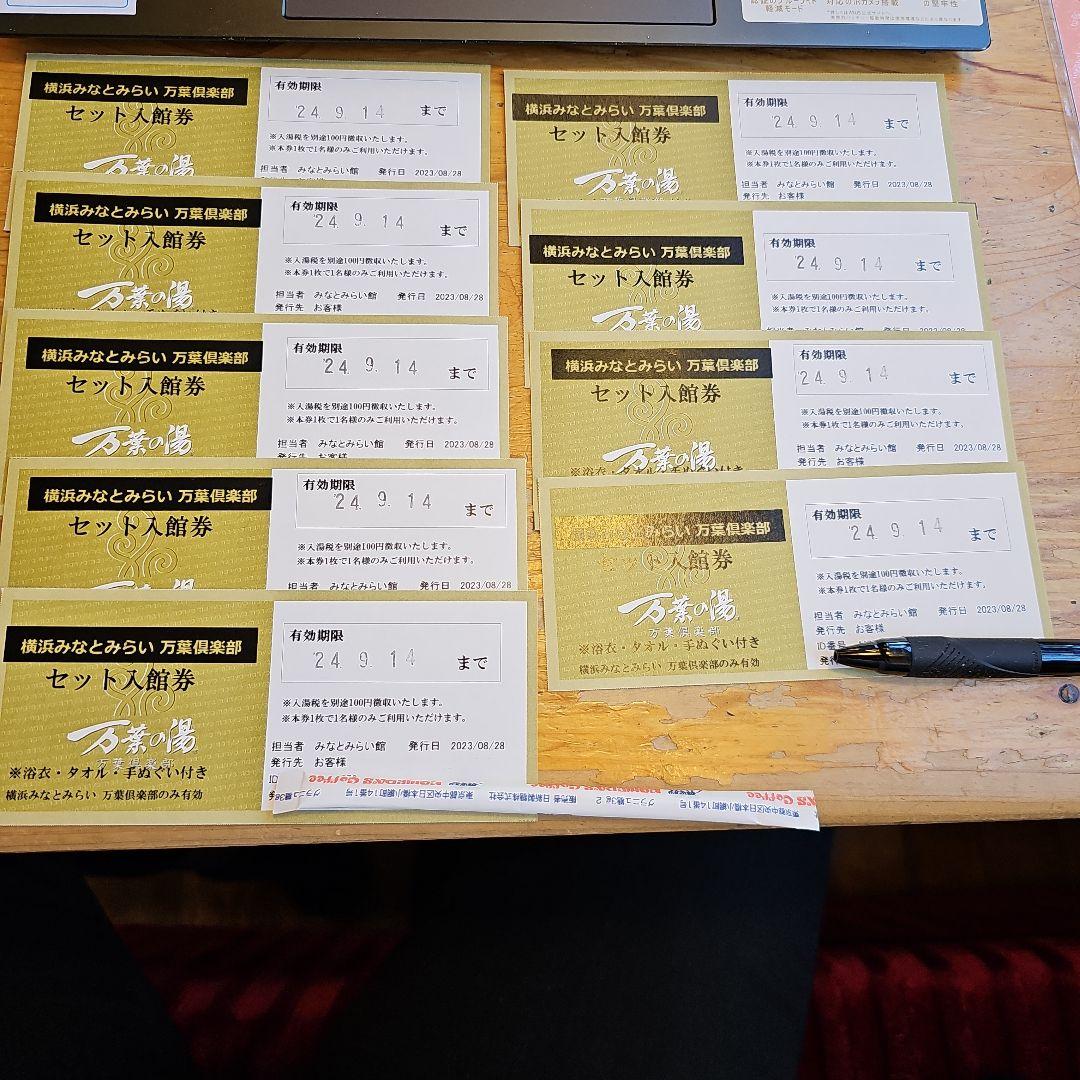 軽減モード
対応のIRカメラ搭載
の堅牢性
横浜みなとみらい 万葉倶楽部
セット入館券
万葉の湯
有効期限
'24. 9. 14 まで
※入湯税を別途100円徴収いたします。
※本券1枚で1名様のみご利用いただけます。
担当者 みなとみらい館 発行日 2023/08/28
横浜みなとみらい 万葉倶楽部
セット入館券
万葉の湯
有効期限
'24. 9. 14 まで
※入湯税を別途100円徴収いたします。
※本券1枚で1名様のみご利用いただけます。
担当者 みなとみらい館 発行日 2023/08/28
発行先 お客様
横浜みなとみらい 万葉倶楽部
セット入館券
万葉の湯
有効期限
'24. 9. 14 まで
※入湯税を別途100円徴収いたします。
※本券1枚で1名様のみご利用いただけます。
担当者 みなとみらい館 発行日 2023/08/28
発行先 お客様
横浜みなとみらい 万葉倶楽部
セット入館券
有効期限
'24. 9. 14 まで
※入湯税を別途100円徴収いたします。
※本券1枚で1名様のみご利用いただけます。
担当者 みなとみらい館 発行日 2023/08/28
横浜みなとみらい 万葉倶楽部
セット入館券
万葉の湯
万葉倶楽部
※浴衣・タオル・手ぬぐい付き
横浜みなとみらい 万葉倶楽部のみ有効
有効期限
'24. 9. 14 まで
※入湯税を別途100円徴収いたします。
※本券1枚で1名様のみご利用いただけます。
担当者 みなとみらい館 発行日 2023/08/28
発行先 お客様
横浜みなとみらい 万葉倶楽部
セット入館券
万葉の湯
有効期限
'24. 9. 14 まで
※入湯税を別途100円徴収いたします。
※本券1枚で1名様のみご利用いただけます。
担当者 みなとみらい館 発行日 2023/08/28
発行先 お客様
横浜みなとみらい 万葉倶楽部
セット入館券
万葉の湯
有効期限
'24. 9. 14 まで
※入湯税を別途100円徴収いたします。
※本券1枚で1名様のみご利用いただけます。
担当者 みなとみらい館 発行日 2023/08/28
横浜みなとみらい 万葉倶楽部
セット入館券
万葉の湯
※浴衣・タオル・手ぬぐい付き
有効期限
'24. 9. 14 まで
※入湯税を別途100円徴収いたします。
※本券1枚で1名様のみご利用いただけます。
担当者 みなとみらい館 発行日 2023/08/28
発行先 お客様
みらい 万葉倶楽部
セット入館券
万葉の湯
万葉倶楽部
※浴衣・タオル・手ぬぐい付き
横浜みなとみらい 万葉倶楽部のみ有効
有効期限
'24. 9. 14 まで
※入湯税を別途100円徴収いたします。
※本券1枚で1名様のみご利用いただけます。
担当者 みなとみらい館 発行日 2023/08/28
発行先 お客様
ID番号
Coffee
グラニュ糖3g
販売者 日新製糖株式会社
東京都中央区日本橋小網町14番1号